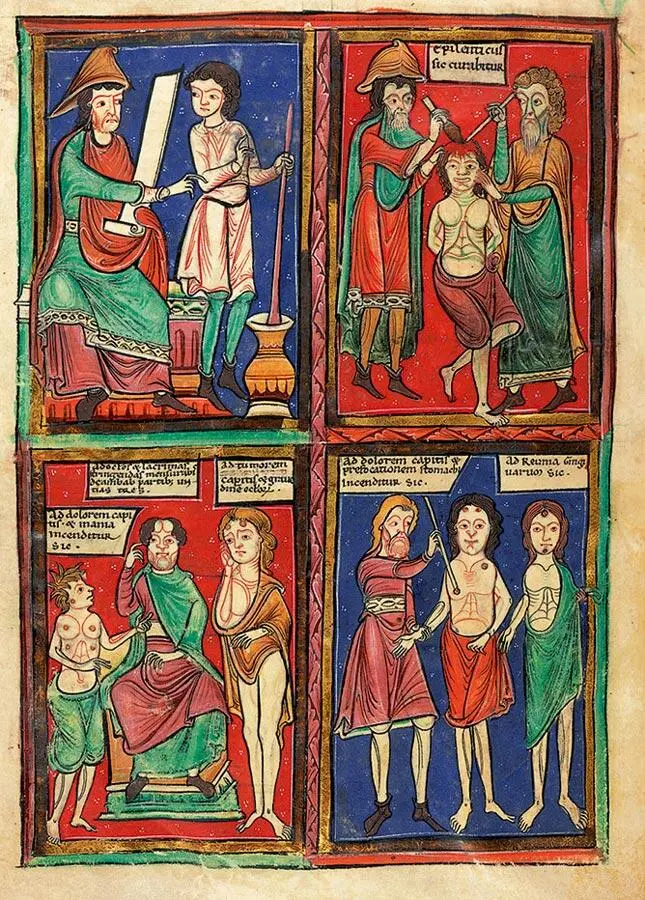 epilenticus
sic curabitur
ad oclos & lacrimas
stringendas
deambab partib; un
tias tres.
ad tumorem
capitis &
dine oclor.
ad dolorem capi
tis · & mania
incenditur
sic ·
ad dolorem capitis &
prefocationem stomachi
incenditur sic ·
ad Reuma gingi
uarum sic ·